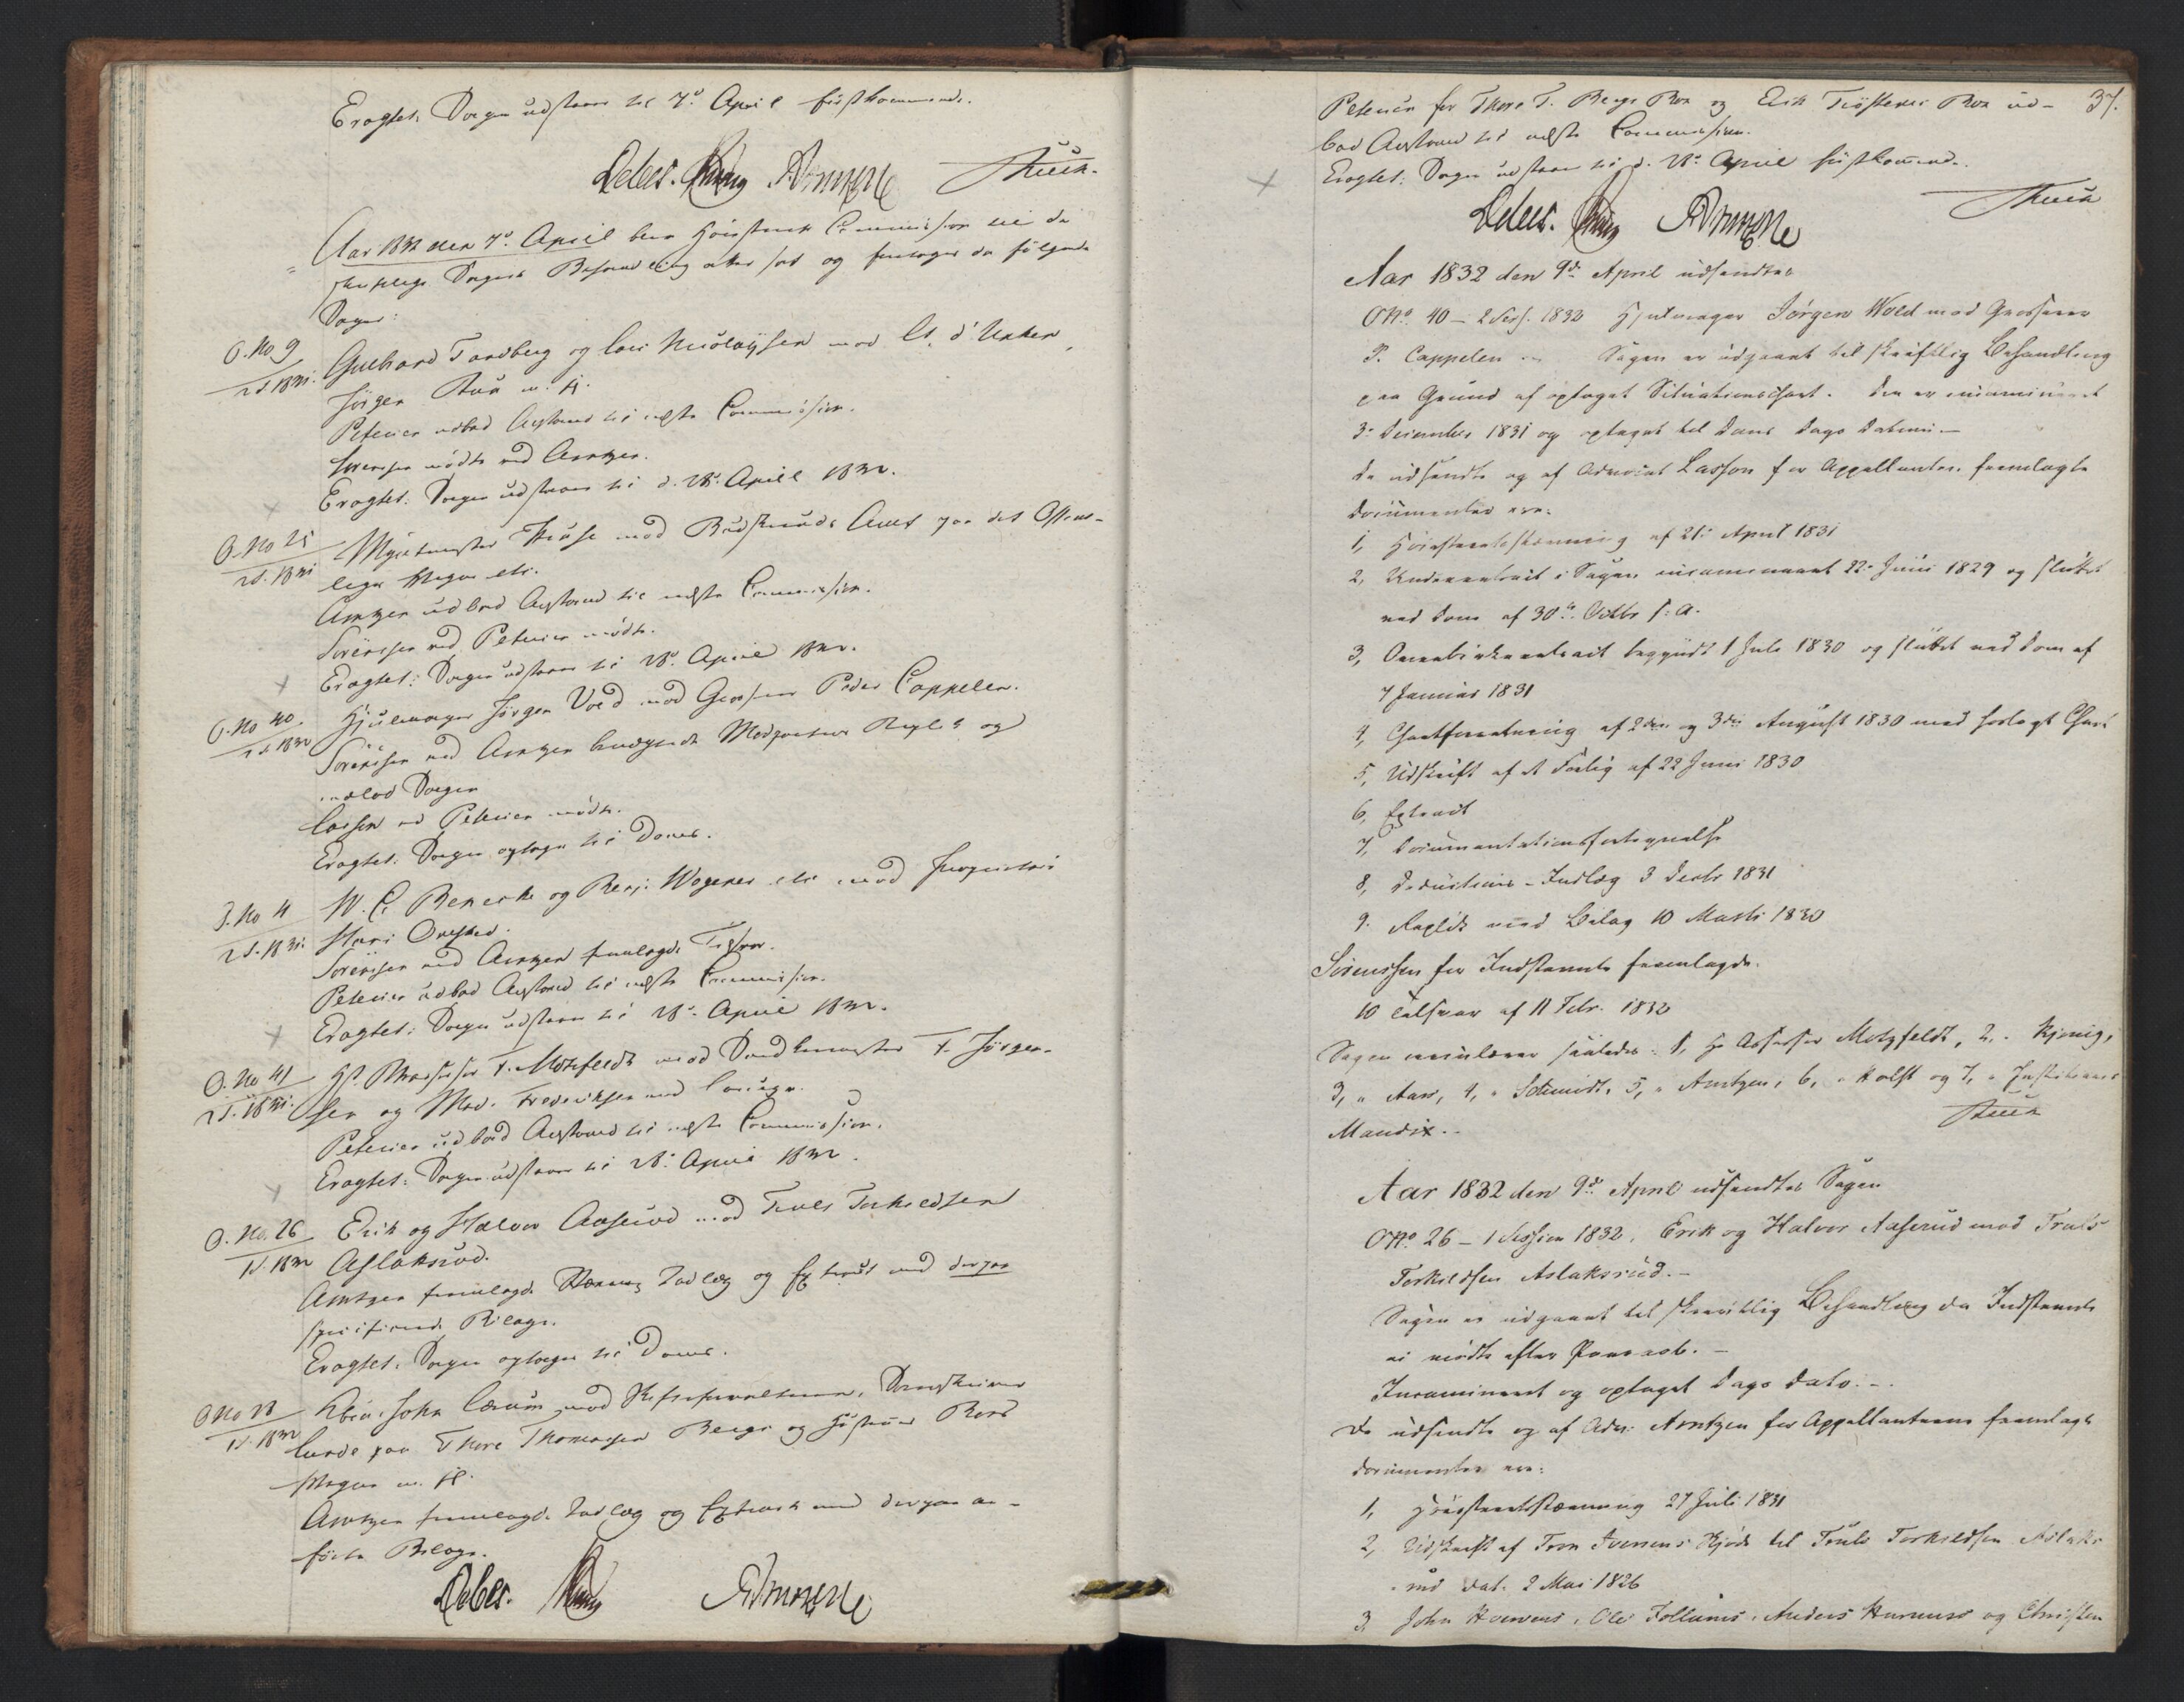 Eragtet: Sagen udstaaer til 7de April førstkommende.
Debes.
Aar 1832 den 7de April blev Høiesterets Commission til de
skriftlige Sagers Behandling atter sat og foretoges da følgende
Sager:
O. No 9
2 S. 1831.
Gulbrand Tandberg og Lars Nicolaysen mod Lt. d'Unker,
Jørgen m. fl.
Petersen udbad Anstand til næste Commission.
Sørensen mødte ved Arntzen.
Eragtet: Sagen udstaaer til d. 28de April 1832.
O. No 25
2 S. 1831
mod Budskeruds Amt paa det Offent-
liges Vegne etc.
Arntzen udbad Anstand til næste Commission.
Sørensen ved Petersen mødte.
Eragtet: Sagen udstaaer til 28de April 1832.
O. No 40.
2 S. 1832
Hjulmager Jørgen Vold mod Grosserer Peder Cappelen.
Sørensen ved Arntzen Modpartens Replik og
indlod Sagen
Lasson ved Petersen mødte.
Eragtet: Sagen optages til Doms.
O. No 4
2 S. 1831.
W. C. Benecke og Benj. Wegener etc mod Proprietair
Hans
Sørensen ved Arntzen fremlagde Tilsvar.
Petersen udbad Anstand til næste Commission.
Eragtet: Sagen udstaaer til 28de April 1832.
O. No 41
2 S. 1831.
Hr. Assessor F. Motzfeldt mod F. Jørgen-
sen og Mad. Frederiksen med Laugv.
Petersen udbad Anstand til næste Commission.
Eragtet: Sagen udstaaer til 28de April 1832.
O. No. 26
1 S. 1832
Erik og Halvor Aaserud mod Truls Torkildsen
Aslaksrud.
Arntzen fremlagde Stævning, Indlæg og Extract med derpaa
specificerede Bilage.
Eragtet: Sagen optages til Doms.
O No 28
1 S. 1832
John mod Skifteforvalteren, Sorenskriver
Lunde paa Thore Thomassen Bergs og Hustrues Boes
Vegne m. fl.
Arntzen fremlagde Indlæg og Extract med derpaa an-
førte Bilage.
Debes.
37.
Petersen for Thore T. Bergs Boe og Erik Boe ud-
bad Anstand til næste Commission.
Eragtet: Sagen udstaaer til d. 28de April førstkommende.
Debes.
Aar 1832 den 9de April udsendtes
O No. 40 – 2 Sess. 1832 Hjulmager Jørgen Wold mod Grosserer
P. Cappelen – Sagen er udgaaet til skriftlig Behandling
paa Grund af optaget Situationschart. Den er incamineret
3de December 1831 og optaget til Doms Dags Datum. –
De udsendte og af Advocat Lasson for Appellanten fremlagte
Documenter ere:
1, Høiesteretsstævning af 21de April 1831
2, Underretsact i Sagen incamineret 22de Juni 1829 og sluttet
ved Dom af 30te Octbr s. A.
3, Overbirkeretsact begyndt 1 Juli 1830 og sluttet ved Dom af
7 Januar 1831
4, Chartforretning af 2den og 3die August 1830 med forlagt Chart
5, Udskrift af et Forlig af 22 Juni 1830
6, Extract
7, Documentationsfortegnelse
8, Deductions-Indlæg 3 Decbr 1831
9. Replik med Bilag 10 Marts 1832
Sørenssen for Indstævnte fremlagde.
10 Tilsvar af 11 Febr. 1832
Sagen circulerer saaledes: 1, Hr Assessor Motzfeldt, 2, " Bjerring,
3, " Aars, 4, " Schmidt, 5, " Arntzen, 6, " Holst og 7, " Justitiarius
Mandix. –
Aar 1832 den 9de April udsendtes Sagen
O No. 26 – 1 Session 1832, Erik og Halvor Aaserud mod Truls
Torkildsen Aslaksrud. –
Sagen er udgaaet til skriftlig Behandling da Indstævnte
ei mødte efter Paaraab. –
Incamineret og optaget Dags Dato. –
De udsendte og af Adv. Arntzen for Appellanterne fremlagte
Documenter ere:
1, Høiesteretsstævning 27 Juli 1831
2, Udskrift af Tron Iversens Skjøde til Truls Torkildsen Aslaks-
rud dat. 2 Mai 1826
3, John Ole Anders og Christen